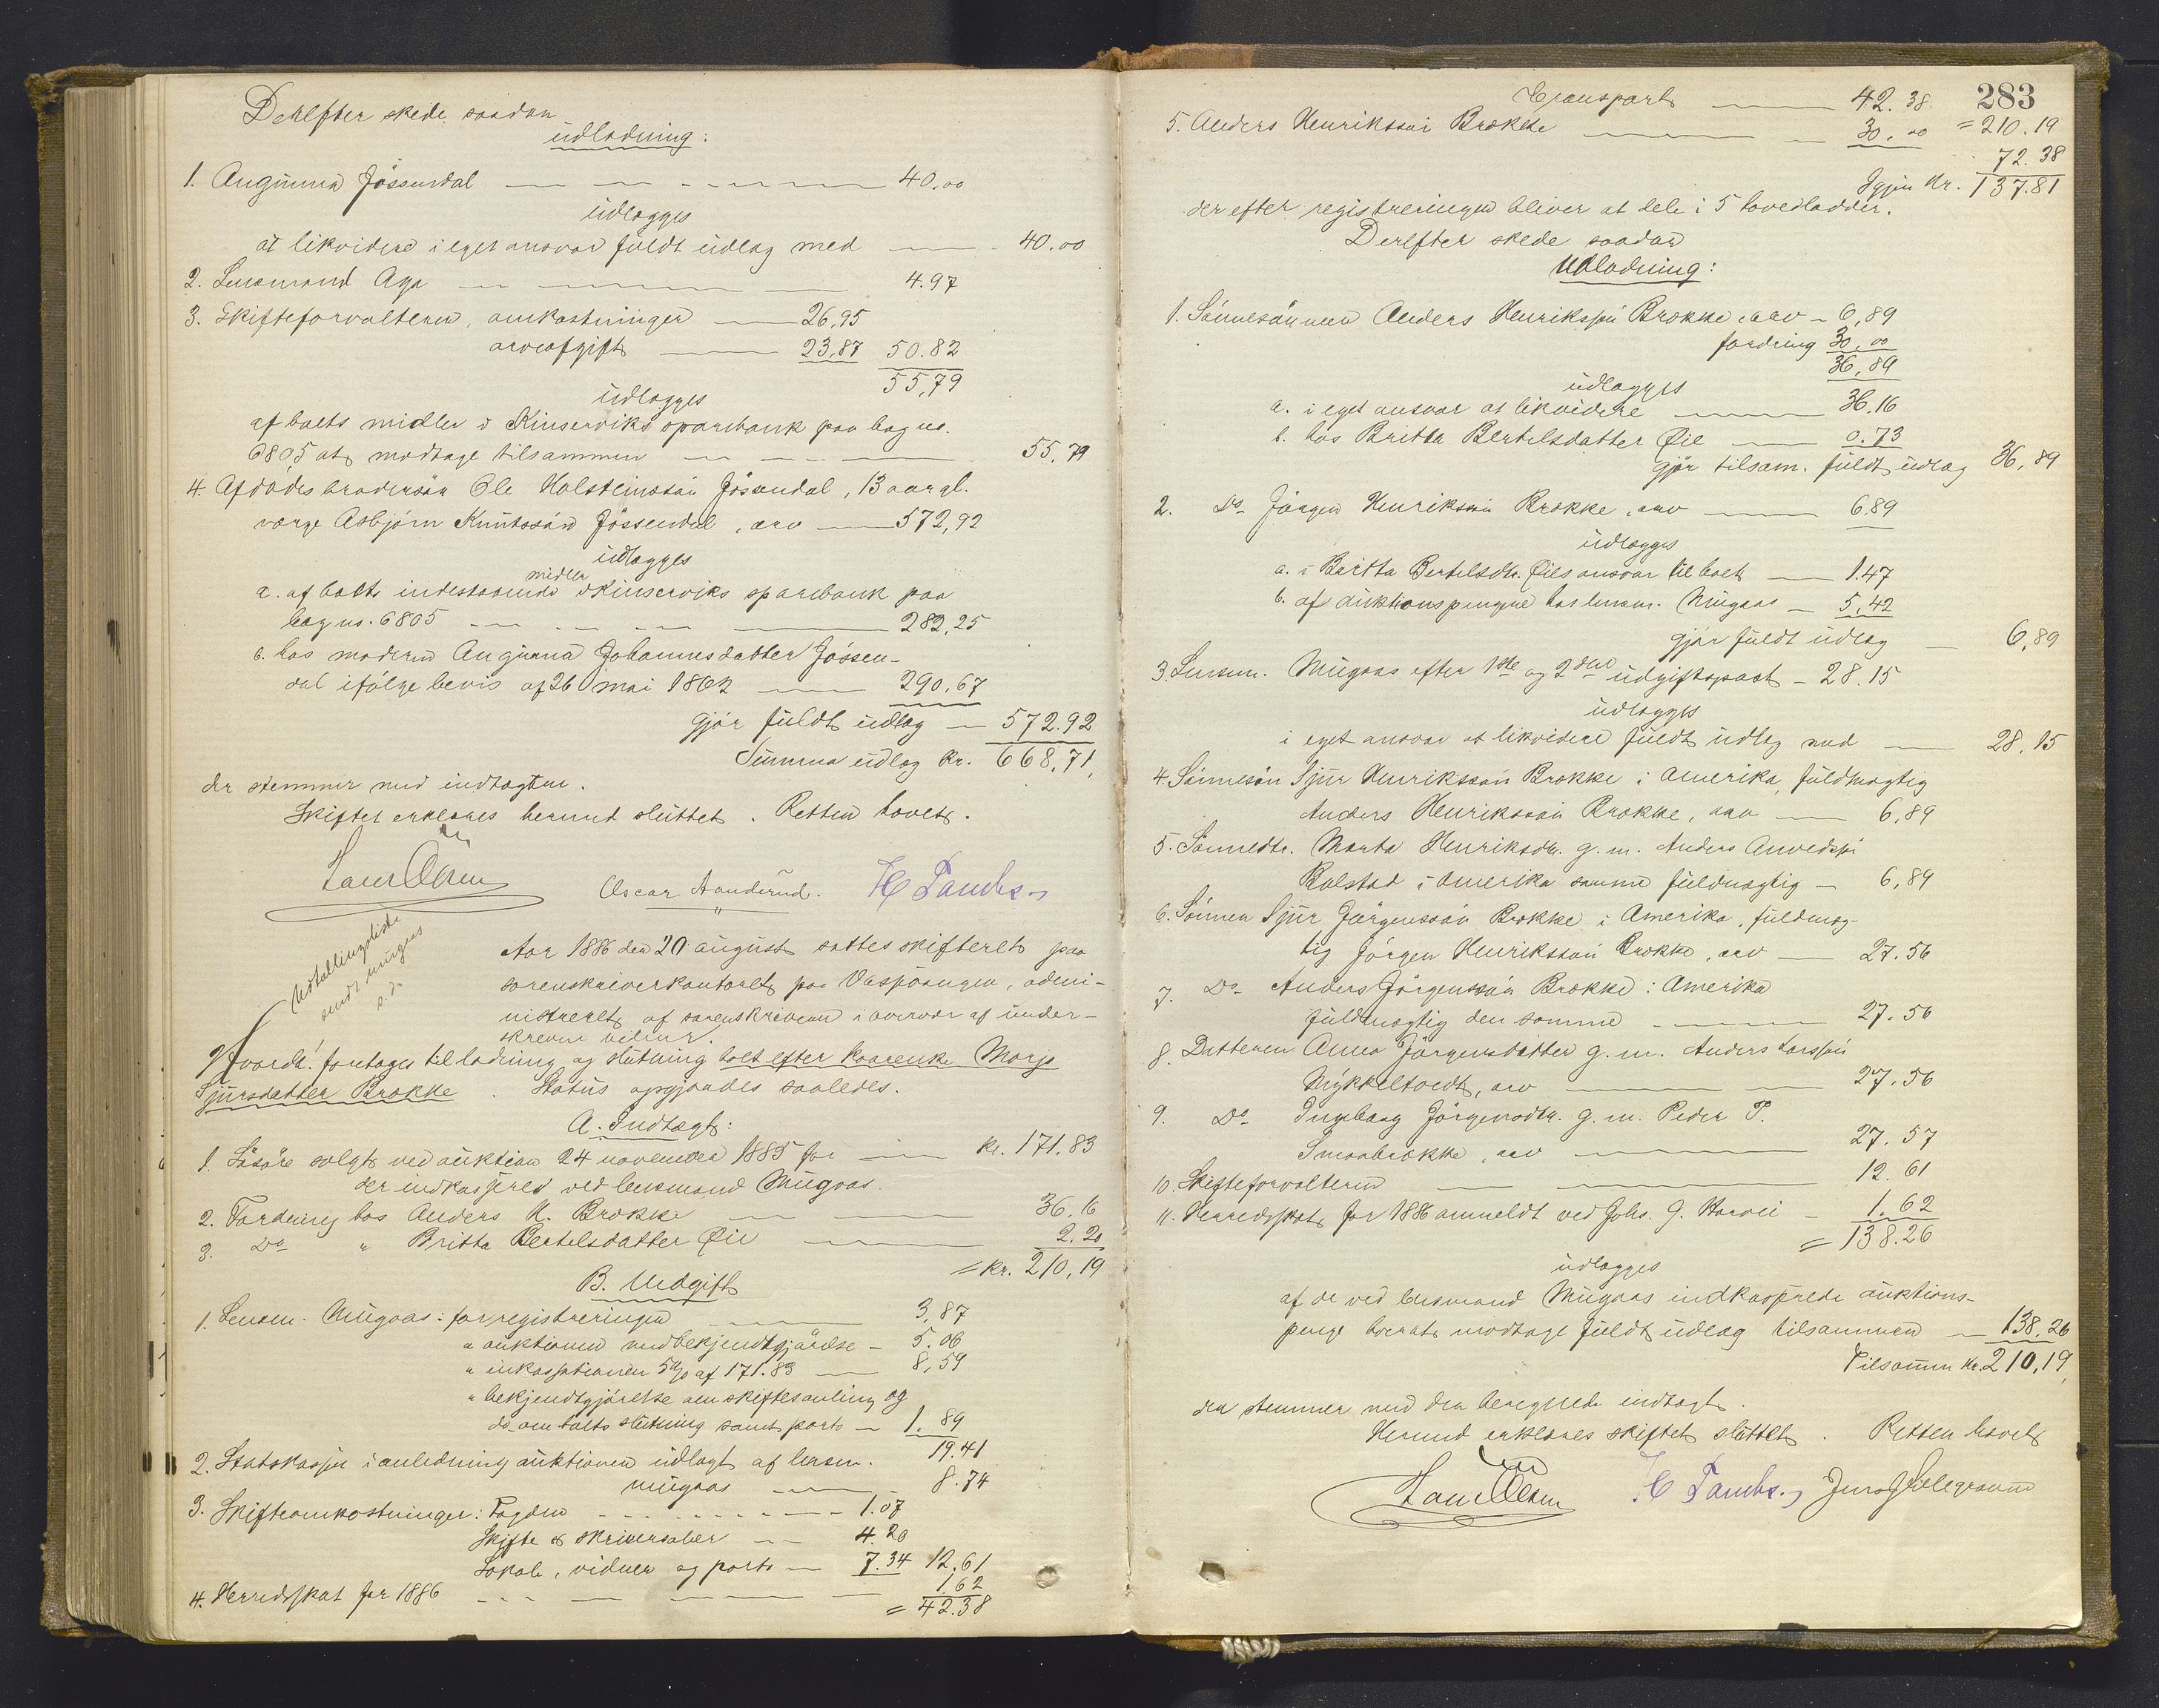 Derefter skede saadan
udlodning:
1. Angunna Jössendal — 40.00
udlægges
at likvidere i eget ansvar fuldt udlæg med — 40.00
2. Lensmand Aga — 4.97
3. Skifteforvalteren, omkostninger — 26,95
arveafgift — 23,87 50.82
55,79
udlægges
af boets midler i Kinserviks sparebank paa bog no.
6805 at modtage tilsammen — 55.79
4. Afdödes brodersön Ole Holsteinssön Jösendal, 13 aar gl.
verge Asbjörn Knutssön Jössendal, arv — 572,92
udlægges
a. af boets indestaaende midler i Kinserviks sparebank paa
bog no. 6805 — 282,25
b. hos moderen Angunna Johannesdatter Jössen-
dal ifölge bevis af 26 mai 1862 — 290,67
gjör fuldt udlæg — 572.92
Summa udlæg kr. 668,71,
der stemmer med indtægten.
Skiftet erklæres hermed sluttet. Retten hævet.
Oscar Aanderud. H Tambs
Udtallingsliste
sendt Mugaas
s. d.
Aar 1886 den 20 august sattes skifteret paa
sorenskriverkontoret paa Vaspöangen, admi-
nistreret af sorenskriveren i overvær af under-
skrevne vidner.
Hvorda: foretoges til lodning og slutning boet efter kaarenke Marja
Sjursdatter Brokke. Status opgjordes saaledes.
A. Indtægt:
1. Lösöre solgt ved auktion 24 november 1885 for — kr. 171.83
der indkasseres ved lensmand Mugaas.
2. Fordring hos Anders H. Brokke — 36.16
3. Do " Britta Bertelsdatter Øie — 2.20
= kr. 210,19
B. Udgift
1. Lensm. Mugaas: for registreringen — 3,87
" auktionen med bekjendtgjörelse — 5.06
" inkassationen 5 % af 171.83 — 8,59
" bekjendtgjörelse om skiftesamling og
do. om boets slutning samt porto — 1.89
19.41
2. Statskassen i anledning auktionen udlagt af lensm.
Mugaas — 8.74
3. Skifteomkostninger: Fogden — 1.07
Skifte & skriversaler — 4.20
Lokale, vidner og porto — 7.34 12,61
4. Herredsskat for 1886 — 1.62
= 42.38
283
Transport — 42.38 = 210.19
5. Anders Henrikssön Brokke — 30.00
72.38
Igjen kr. 137.81
der efter registreringen bliver at dele i 5 hovedlodder.
Derefter skede saadan
Udlodning:
1. Sönnesönnen Anders Henrikssön Brokke, arv — 6,89
fordring 30,00
36,89
udlægges
a. i eget ansvar at likvidere — 36.16
b. hos Britta Bertelsdatter Øie — 0.73
gjör tilsam. fuldt udlæg 36,89
2. Do Jörgen Henrikssön Brokke, arv — 6.89
udlægges
a. i Britta Bertelsdtr. Øies ansvar til boet — 1.47
b. af auktionspengene hos lensm. Mugaas — 5,42
gjör fuldt udlæg — 6,89
3. Lensm. Mugaas efter 1ste og 2den udgiftspost — 28.15
udlægges
i eget ansvar at likvidere fuldt udlæg med — 28.15
4. Sönnesön Sjur Henrikssön Brokke i Amerika, fuldmægtig
Anders Henrikssön Brokke, arv — 6,89
5. Sönnedtr. Marta Henriksdtr. g. m. Anders
Rolstad i Amerika samme fuldmægtig — 6,89
6. Sönnen Sjur Jörgenssön Brokke i Amerika, fuldmæg-
tig Jörgen Henrikssön Brokke, arv — 27.56
7. Do Anders Jörgenssön Brokke i Amerika
fuldmægtig den samme — 27.56
8. Datteren Anna Jörgensdatter g. m. Anders Larssön
Mykkeltvedt, arv — 27,56
9. Do Ingeborg Jörgensdtr. g. m. Peder T.
Smaabrokke, arv — 27.57
10. Skifteforvalteren — 12.61
11. Herredsskat for 1886 anmeldt ved Johs. J. Harvei — 1.62
= 138.26
udlægges
af de ved lensmand Mugaas indkasserede auktions-
penge hver at modtage fuldt udlæg tilsammen — 138,26
Tilsamm kr. 210,19,
der stemmer med den beregnede indtægt.
Hermed erklæres skiftet sluttet. Retten hævet
H Tambs.